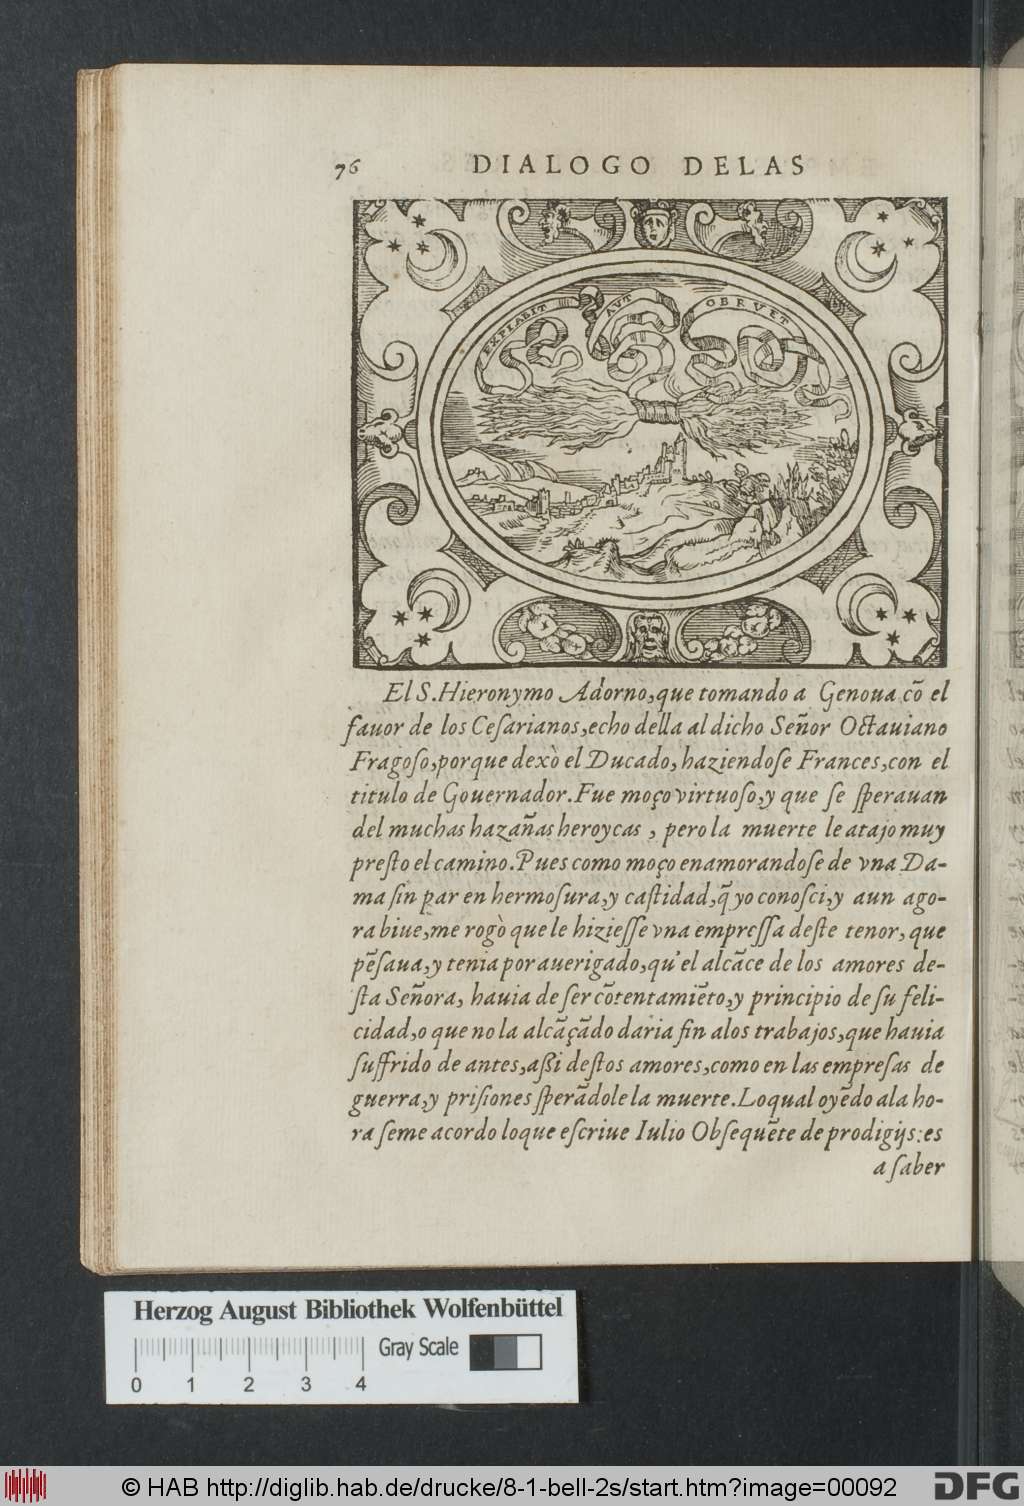 76 DIALOGO DELAS
EXPIABIT AVT OBRVET
El S. Hieronymo Adorno, que tomando a Genoua cõ el
fauor de los Cesarianos, echo della al dicho Señor Octauiano
Fragoso, porque dexò el Ducado, haziendose Frances, con el
titulo de Gouernador. Fue moço virtuoso, y que se sperauan
del muchas hazañas heroycas, pero la muerte le atajo muy
presto el camino. Pues como moço enamorandose de vna Da-
ma sin par en hermosura, y castidad, q̃ yo conosci, y aun ago-
ra biue, me rogò que le hiziesse vna empressa deste tenor, que
pẽsaua, y tenia por aueriguado, qu'el alcãce de los amores de-
sta Señora, hauia de ser cõtentamiẽto, y principio de su feli-
cidad, o que no la alcãçãdo daria fin alos trabajos, que hauia
suffrido de antes, aßi destos amores, como en las empresas de
guerra, y prisiones sperãdole la muerte. Loqual oyẽdo ala ho-
ra seme acordo loque escriue Iulio Obsequẽte de prodigijs: es
a saber
Herzog August Bibliothek Wolfenbüttel
Gray Scale
0 1 2 3 4
© HAB http://diglib.hab.de/drucke/8-1-bell-2s/start.htm?image=00092
DFG